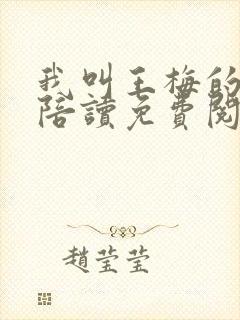 我叫王梅的
陪讀免費閱
趙莹莹